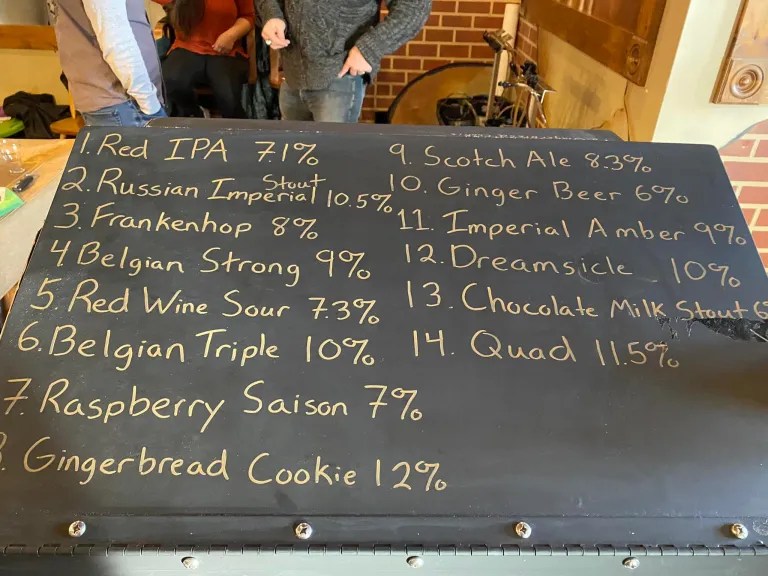 1. Red IPA 7.1%
2. Russian Imperial Stout 10.5%
3. Frankenhop 8%
4 Belgian Strong 9%
5. Red Wine Sour 7.3%
6. Belgian Triple 10%
7. Raspberry Saison 7%
8. Gingerbread Cookie 12%
9. Scotch Ale 8.3%
10. Ginger Beer 6%
11. Imperial Amber 9%
12. Dreamsicle 10%
13. Chocolate Milk Stout 6
14. Quad 11.5%